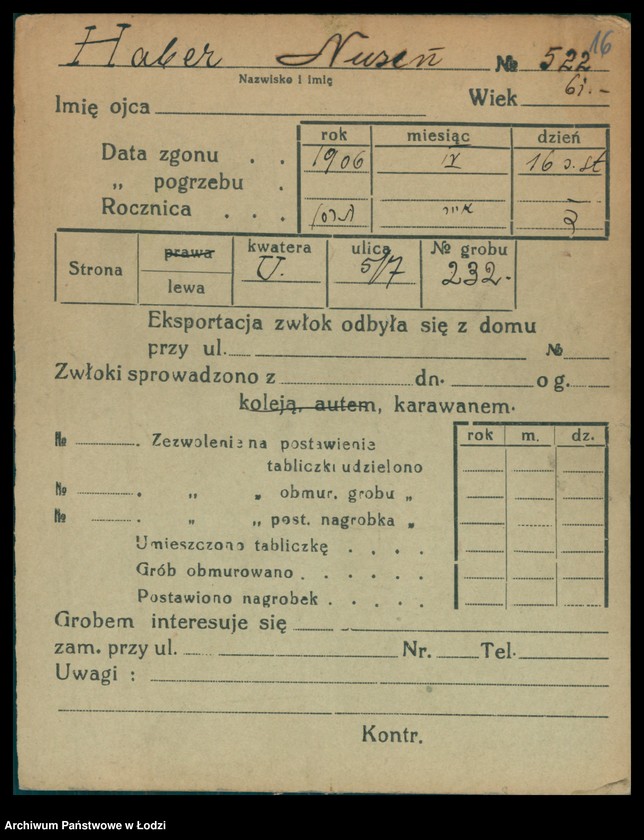 16
Haber Nuseń № 522
Nazwisko i imię
Imię ojca Wiek 61.-
rok miesiąc dzień
Data zgonu . . 1906 16 s. st
„ pogrzebu .
Rocznica . . . אייר
Strona prawa kwatera ulica № grobu
lewa U. 5/7 232.-
Eksportacja zwłok odbyła się z domu
przy ul. №
Zwłoki sprowadzono z dn. o g.
koleją, autem, karawanem.
rok m. dz.
№ . Zezwolenie na postawienie
tabliczki udzielono
№ . „ „ obmur. grobu „
№ . „ „ post. nagrobka „
Umieszczono tabliczkę . . . .
Grób obmurowano . . . . .
Postawiono nagrobek . . . . .
Grobem interesuje się
zam. przy ul. Nr. Tel.
Uwagi :
Kontr.
Archiwum Państwowe w Łodzi